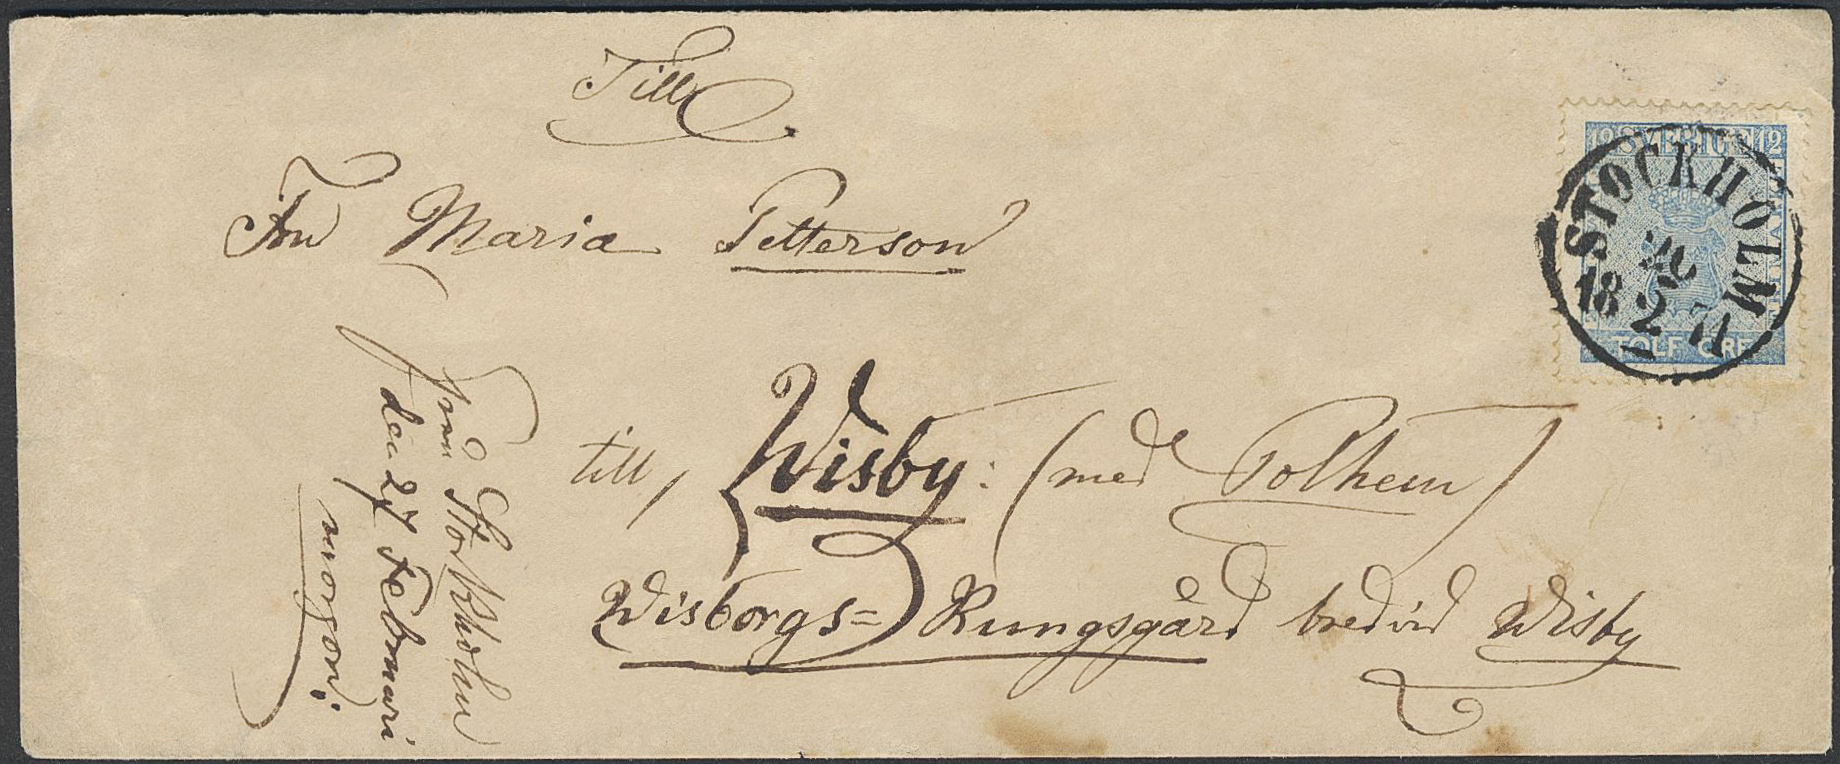 Till
Fru Maria Petterson
till, Wisby: (med Polhem)
Wisborgs= Kungsgård bredvid Wisby
från Stockholm
den 27 Februari
morgon:
12 SVERIGE 12
TOLF ÖRE
STOCKHOLM
18 2 71